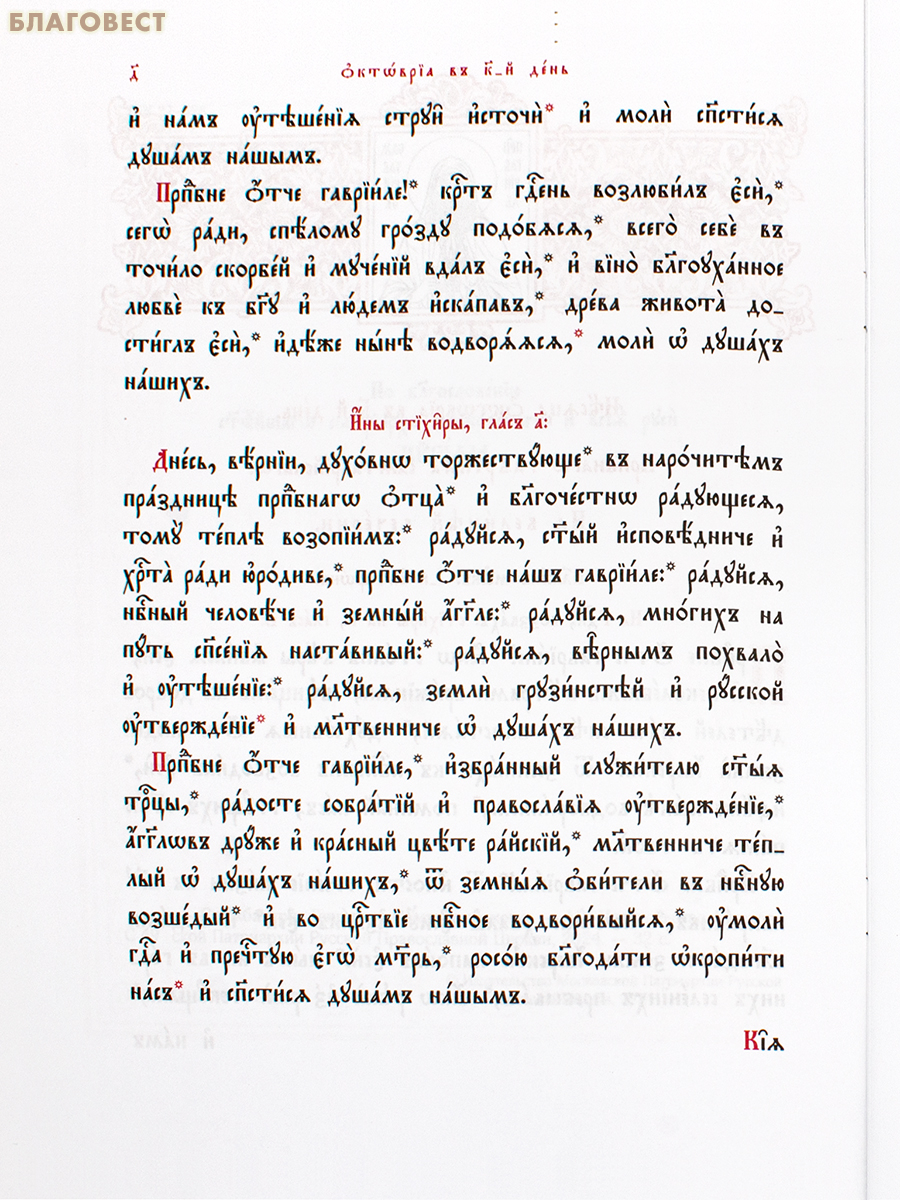 БЛАГОВЕСТ
д҃ ѻ҆ктѡ́врїа въ к҃-й де́нь
и҆ на́мъ ᲂу҆тѣше́нїѧ стрꙋи̑ и҆сточѝ* и҆ молѝ сп҃сти́сѧ
дꙋша́мъ на́шымъ.
Прпⷣбне ѻ҆́тче гаврїи́ле!* крⷭ҇тъ гдⷭ҇ень возлюби́лъ є҆сѝ,*
сегѡ̀ ра́ди, спѣ́ломꙋ гро́здꙋ подо́бѧсѧ,* всего̀ себѐ въ
точи́ло скорбе́й и҆ мꙋче́нїй вда́лъ є҆сѝ,* и҆ вїно̀ бл҃гоꙋха́нное
любвѐ къ бг҃ꙋ и҆ лю́демъ и҆скапавъ,* дре́ва живота̀ до-
сти́глъ є҆сѝ,* и҆дѣ́же ны́нѣ водворѧ́ѧсѧ,* молѝ ѡ҆ дꙋша́хъ
на́шихъ.
И҆́ны стїхи̑ры, гла́съ а҃:
Дне́сь, вѣ́рнїи, дꙋхо́внѡ торжествꙋ́юще* въ наро́читѣмъ
пра́здницѣ прпⷣбнагѡ ѻ҆тца̀* и҆ бл҃гоче́стнѡ ра́дꙋющесѧ,
томꙋ̀ те́плѣ возопїи́мъ:* ра́дꙋйсѧ, ст҃ы́й и҆сповѣ́дниче и҆
хрⷭ҇та̀ ра́ди ю҆ро́диве,* прпⷣбне ѻ҆́тче на́шъ гаврїи́ле:* ра́дꙋйсѧ,
нбⷭ҇ный человѣ́че и҆ земны́й а҆́гг҃ле:* ра́дꙋйсѧ, мно́гихъ на
пꙋ́ть сп҃се́нїѧ наста́вивый:* ра́дꙋйсѧ, вѣ̑рнымъ похвало̀
и҆ ᲂу҆тѣше́нїе:* ра́дꙋйсѧ, землѝ грꙋзи́нстѣй и҆ рꙋ́сской
ᲂу҆твержде́нїе* и҆ мл҃твенниче ѡ҆ дꙋша́хъ на́шихъ.
Прпⷣбне ѻ҆́тче гаврїи́ле,* и҆збра́нный слꙋжи́телю ст҃ы́ѧ
трⷪ҇цы,* ра́досте собра́тїй и҆ правосла́вїѧ ᲂу҆твержде́нїе,*
а҆́гг҃лѡвъ дрꙋ́же и҆ кра́сный цвѣ́те ра́йскїй,* мл҃твенниче те́п-
лый ѡ҆ дꙋша́хъ на́шихъ,* ѿ земны́ѧ ѻ҆би́тели въ нбⷭ҇нꙋю
возше́дый* и҆ во црⷭ҇твїе нбⷭ҇ное водвори́выйсѧ,* ᲂу҆молѝ
гдⷭ҇а и҆ пречⷭ҇тꙋю є҆гѡ̀ мт҃рь,* росо́ю бл҃года́ти ѡ҆кропи́ти
на́съ* и҆ сп҃сти́сѧ дꙋша́мъ на́шымъ.
Кїѧ